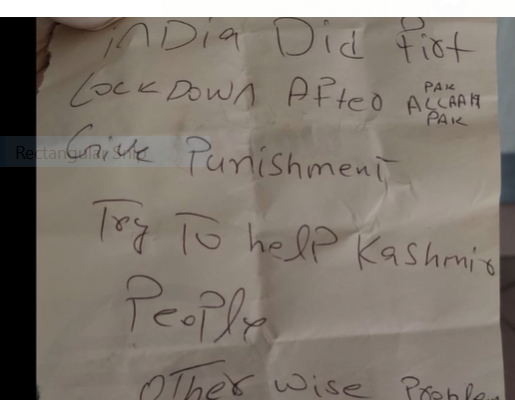 INDIA Did First
LOCKDOWN After PAK
ALLAAH
PAK
Give Punishment
Try To help Kashmir
People
OTher wise Problem